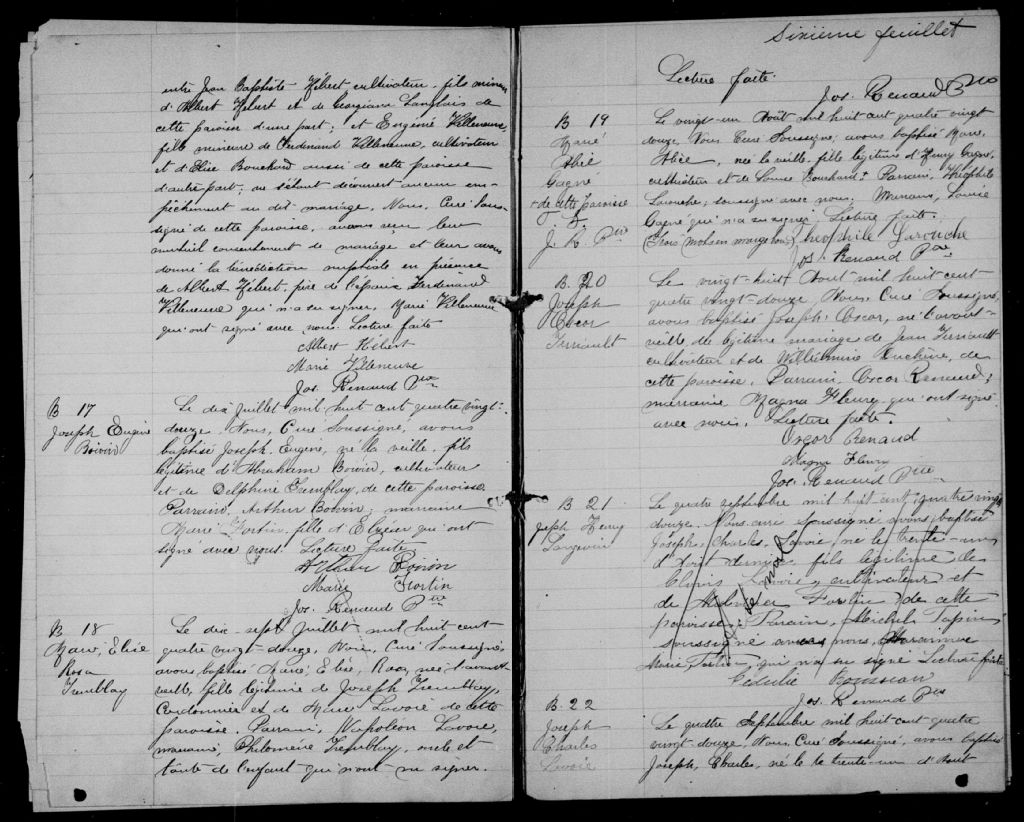 entre Jean Baptiste Hébert cultivateur, fils mineur
d'Albert Hébert et de Georgiana Langlais de
cette paroisse d'une part; et Eugénie Villeneuve,
fille mineure de Ferdinand Villeneuve, cultivateur
et d'Elise Bouchard aussi de cette paroisse
d'autre part; ne s'étant découvert aucun em-
pêchement au dit mariage, Nous, Curé Sous-
signé de cette paroisse, avons reçu leur
mutuel consentement de mariage et leur avons
donné la bénédiction nuptiale en présence
de Albert Hébert, père de l'époux Ferdinand
Villeneuve qui n'a su signer, Marie Villeneuve
qui ont signé avec nous. Lecture faite
Albert Hébert
Marie Villeneuve
Jos. Renaud Ptre
B 17
Joseph Eugène
Boivin
Le dix Juillet mil huit cent quatre vingt-
douze, Nous, Curé Soussigné, avons
baptisé Joseph, Eugène, né la veille, fils
légitime d'Abraham Boivin, cultivateur
et de Delphine Tremblay, de cette paroisse.
Parrain, Arthur Boivin; marraine
Marie Fortin, fille d'Elzéar qui ont
signé avec nous. Lecture faite
Arthur Boivin
Marie Fortin
Jos. Renaud Ptre
B 18
Marie, Elise
Rosa
Tremblay
Le dix-sept Juillet mil huit cent
quatre vingt-douze, Nous, Curé Soussigné,
avons baptisé Marie, Elise, Rosa, née l'avant
veille, fille légitime de Joseph Tremblay,
Cordonnier et de Marie Lavoie de cette
paroisse. Parrain, Napoléon Lavoie,
marraine, Philomène Tremblay, oncle et
tante de l'enfant qui n'ont su signer.
Sixième feuillet
Lecture faite.
Jos. Renaud Ptre
B 19
Marie
Alice
Gagné
+ de cette paroisse
J. R. Ptre
Le vingt-un Août mil huit cent quatre vingt
douze, Nous Curé Soussigné, avons baptisé Marie,
Alice, née la veille, fille légitime d'Henry Gagné,
cultivateur et de Louise Bouchard + Parrain, Théophile
Larouche, soussigné avec nous; Marraine, Louise
Gagné qui n'a su signer. Lecture faite.
(Trois mots en marge bons) Théophile Larouche
Jos. Renaud Ptre
B. 20
Joseph
Oscar
Terriault
Le vingt-huit Août mil huit cent
quatre vingt-douze, Nous, Curé Soussigné,
avons baptisé Joseph Oscar, né l'avant-
veille, du légitime mariage de Jean Terriault
cultivateur et de Williamine Duchêne, de
cette paroisse. Parrain, Oscar Renaud;
marraine Magna Fleury, qui ont signé
avec nous. Lecture faite.
Oscar Renaud
Magna Fleury
Jos. Renaud Ptre
B 21
Joseph Henry
Langevin
Le quatre septembre mil huit cent quatre vingt
douze, Nous curé Soussigné avons baptisé
Joseph, Charles, Lavoie, né le trente-un
d'Août dernier, fils légitime de
Lavoie, cultivateur et
de Fortin de cette
paroisse. Parrain, Michel
soussigné avec nous Marraine
Marie Fortin, qui n'a su signé Lecture faite
Jos. Renaud Ptre
B. 22
Joseph
Charles
Lavoie
Le quatre Septembre mil huit-cent quatre
vingt-douze, Nous, Curé Soussigné, avons baptisé
Joseph, Charles, né le le trente-un d'Août